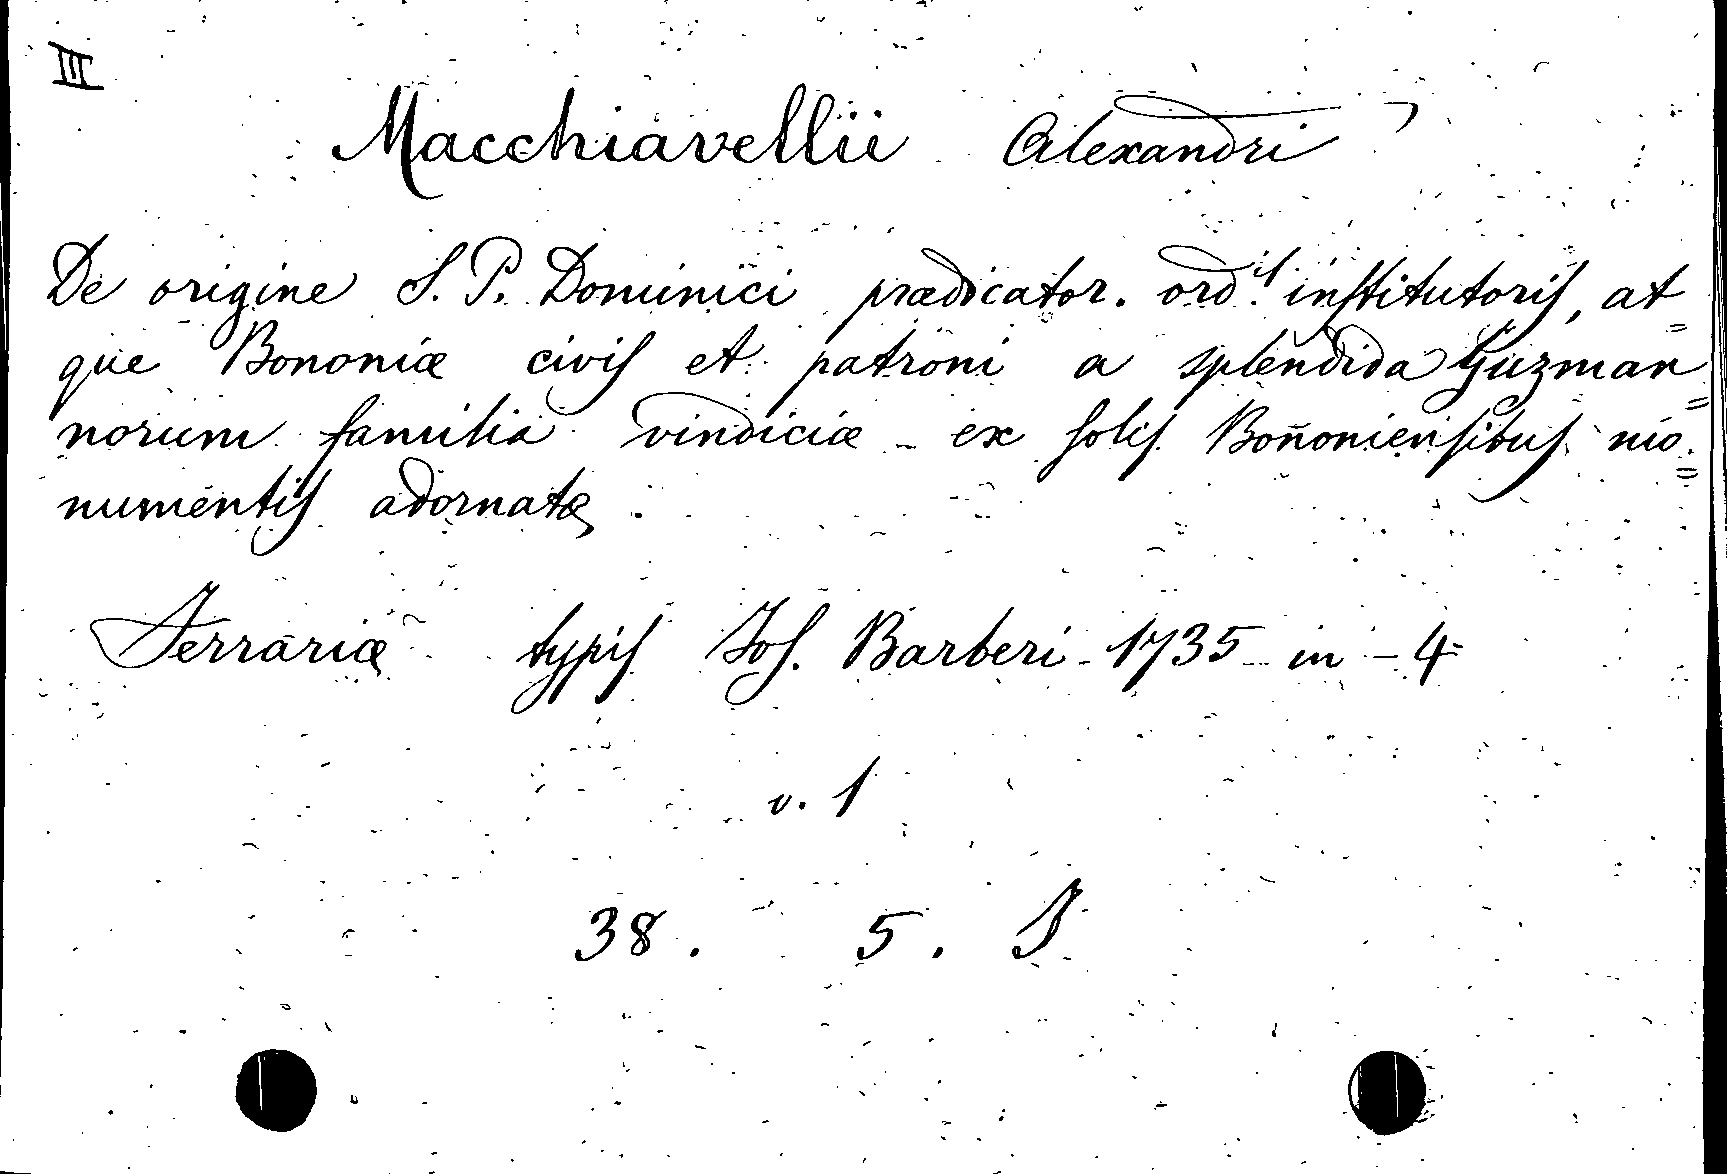 III
Macchiavellii Alexandri
De origine S. P. Dominici prædicator. ord.is institutoris, at=
que Bononiæ civis et patroni a splendida Guzman=
norum familia vindiciæ - ex solis Bononiensibus mo=
numentis adornatæ.
Ferrariæ typis Jos. Barberi - 1735 in - 4
v. 1
38. 5. I